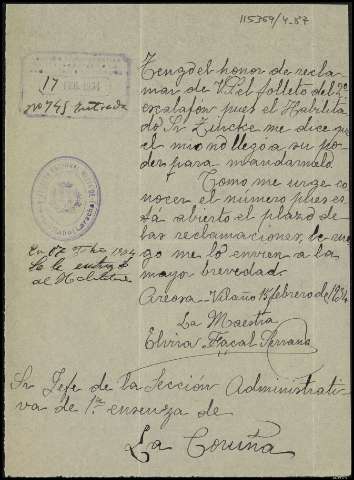 115359/4.87
17 FEB. 1934
nº 745 entrada
Tengo el honor de recla-
mar de V.S. el folleto del 2º
escalafón pues el Habilita-
do Sr Zincke me dice que
el mio no llego a su po-
der para mandarmelo.
Como me urge co-
nocer el número pues es-
tá abierto el plazo de
las reclamaciones, le rue-
go me lo envien a la
mayor brevedad.
Areosa-Vilaño 15 febrero de 1934
La Maestra
Elvira Facal Serrano
En 17 2 1934
Se le entregó
al Habilitado
Sr Jefe de la Sección Administrati-
va de 1ª ensenza de
La Coruña